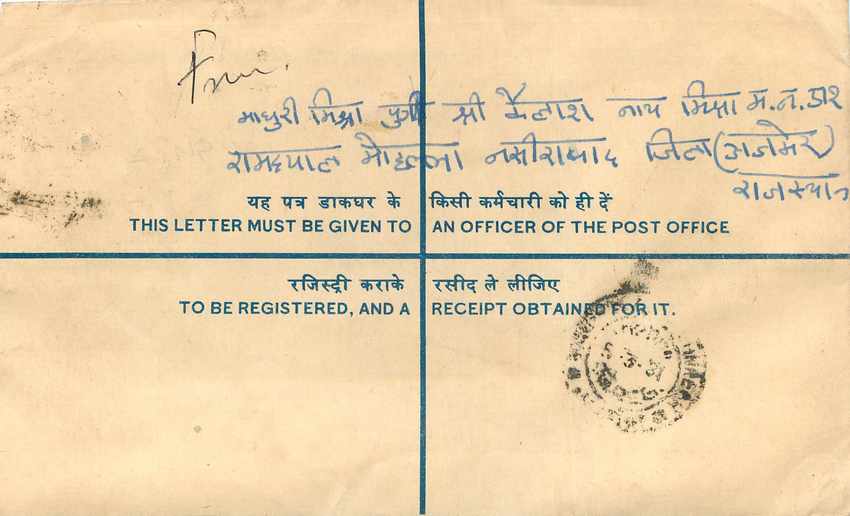 From.
माधुरी मिश्रा पुत्री श्री कैलाश नाथ मिश्रा म. न. 312
रामदयाल मोहल्ला नसीराबाद जिला (अजमेर)
राजस्थान
यह पत्र डाकघर के किसी कर्मचारी को ही दें
THIS LETTER MUST BE GIVEN TO AN OFFICER OF THE POST OFFICE
रजिस्ट्री कराके रसीद ले लीजिए
TO BE REGISTERED, AND A RECEIPT OBTAINED FOR IT.